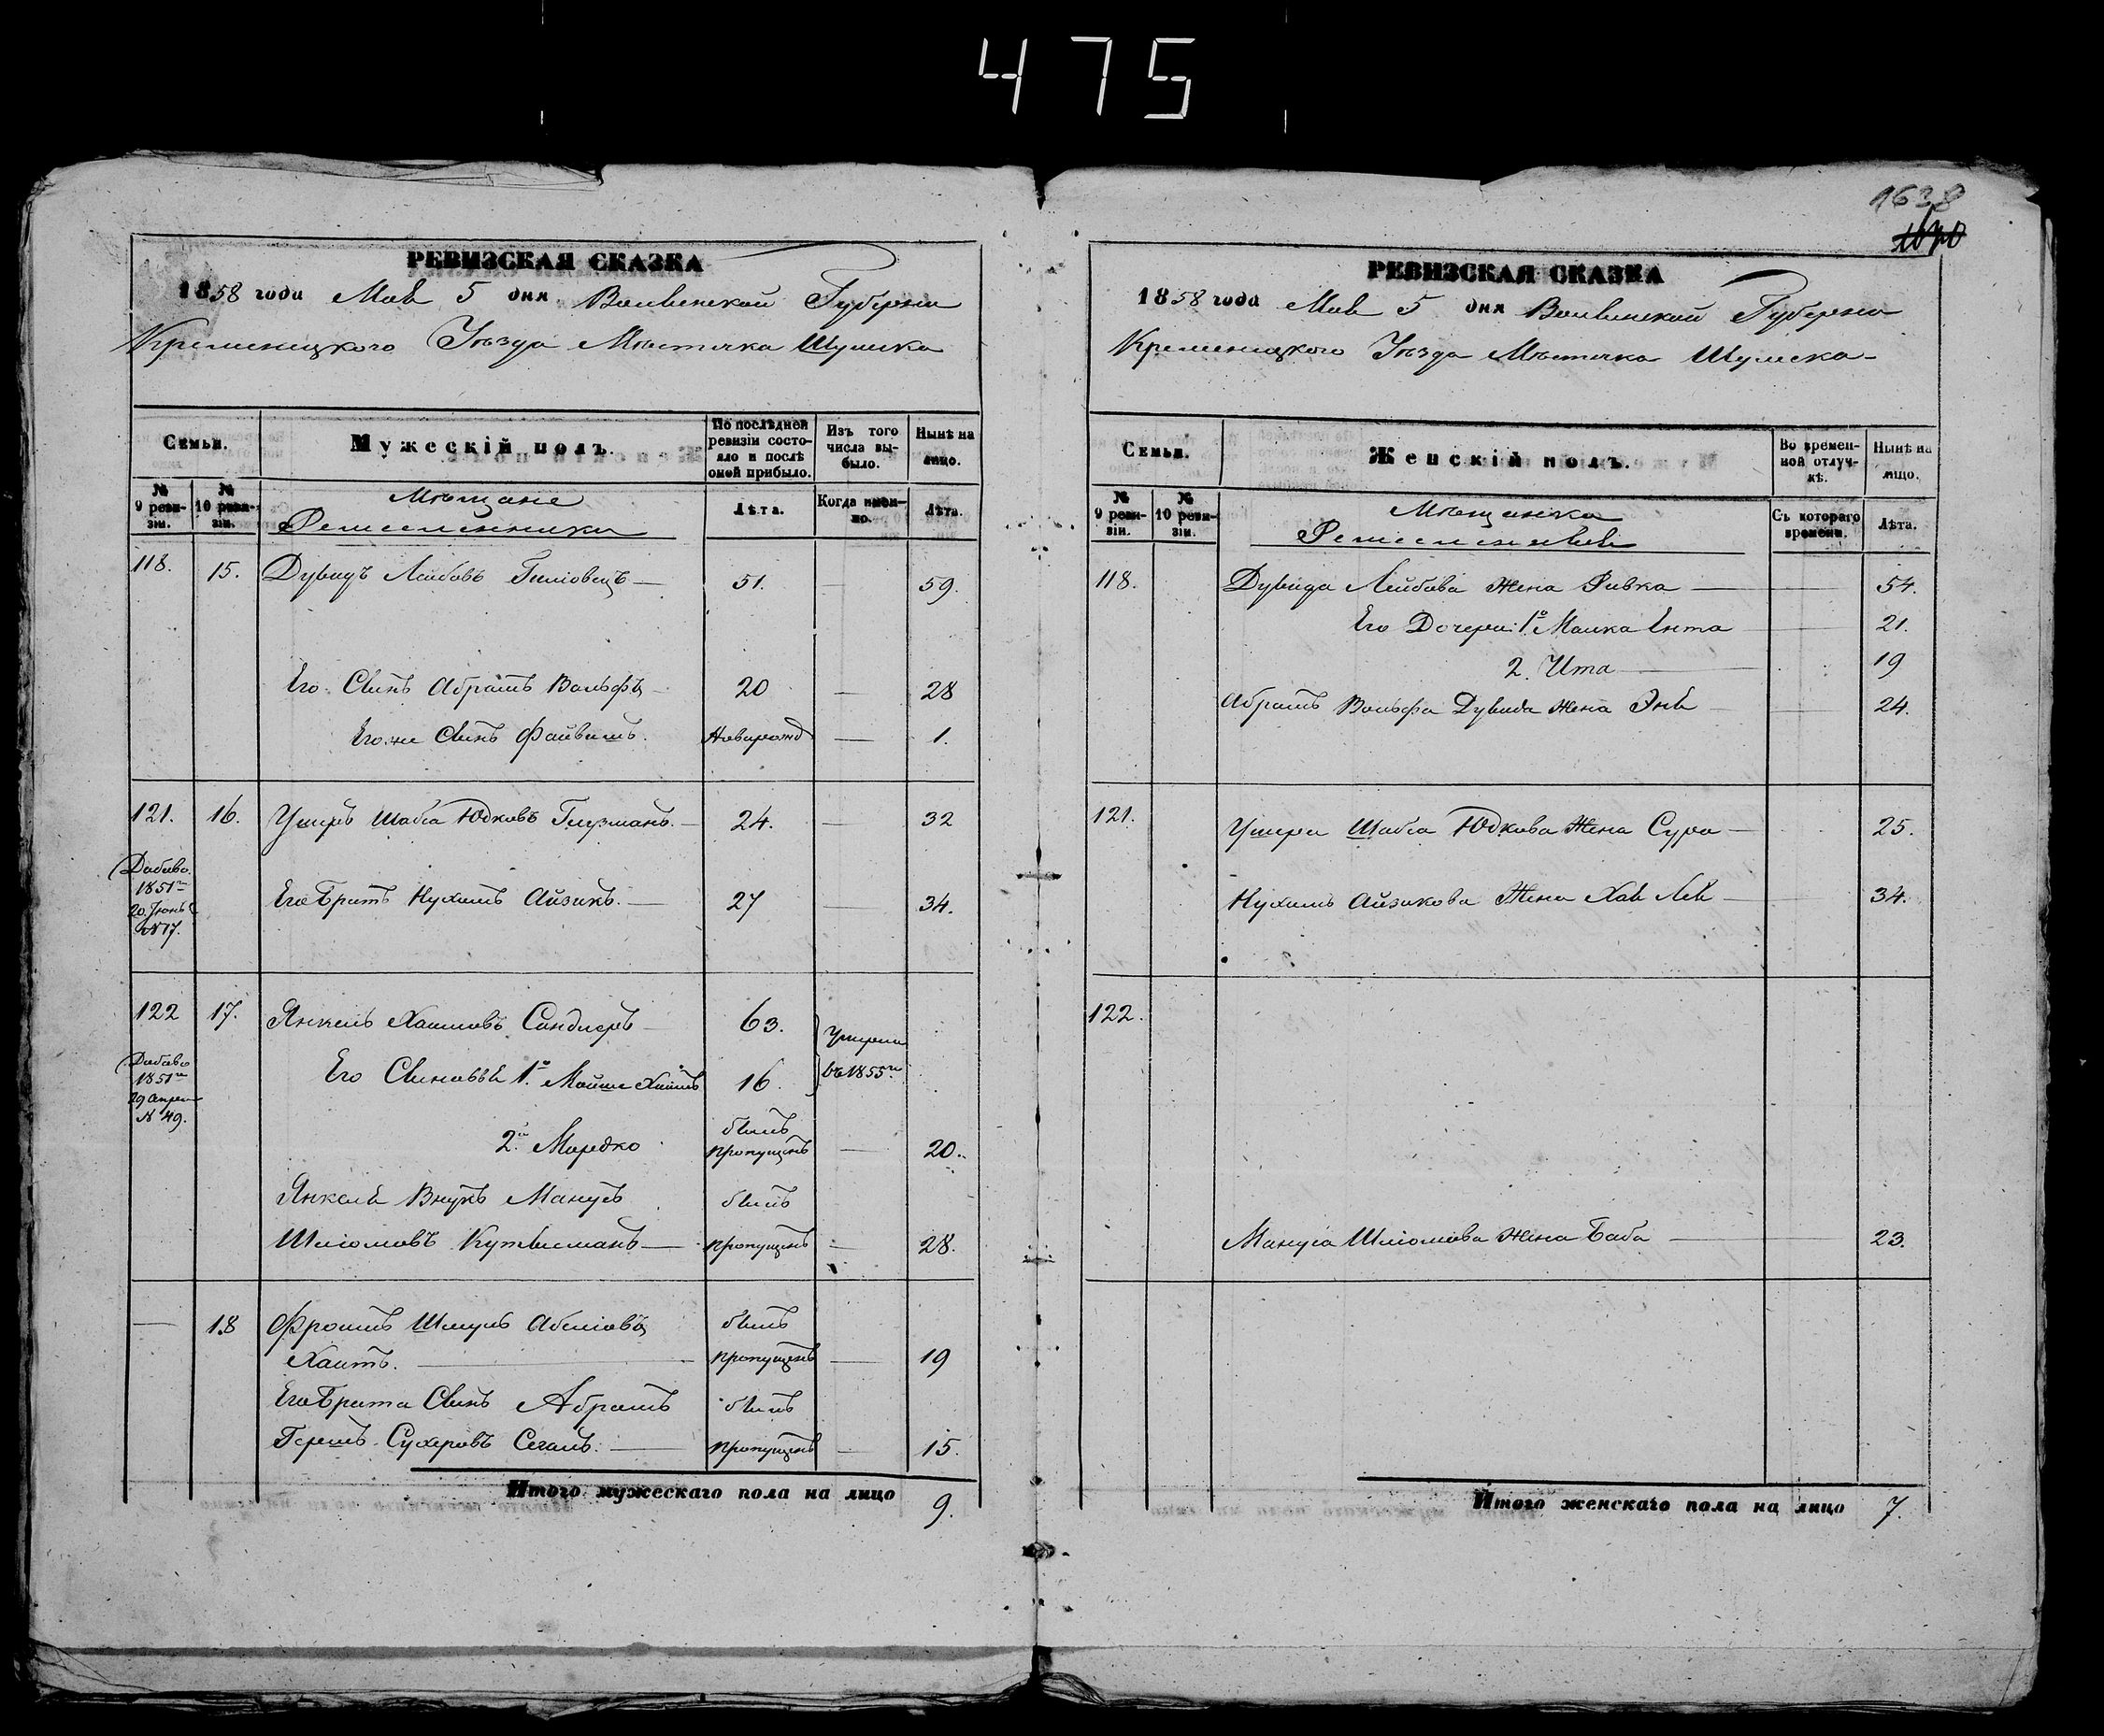 475
1638
РЕВИЗСКАЯ СКАЗКА
1858 года Мая 5 дня Волынской Губерніи
Кременецкого Уѣзда Мѣстечка Шумска
Семьи.
Мужескій полъ.
По послѣдней ревизіи состояло и послѣ оной прибыло.
Изъ того числа выбыло.
Нынѣ на лицо.
№ 9 ревизіи.
№ 10 ревизіи.
Мѣщане
Ремесленники
Лѣта.
Когда именно.
Лѣта.
118. 15. Дувидъ Лейбовъ 51. — 59.
Его Сынъ Абрамъ Вольфъ 20 — 28
Его же Сынъ Файвишъ. Новорожд — 1.
121. 16. Ушеръ Шабса Юдковъ Глузманъ. — 24. — 32
Его Братъ Нухимъ Айзикъ. — 27 — 34.
1851
20 Іюнь
№ 17.
122 17. Янкель Хаимовъ Сандлеръ 63.
Умерли
въ 1855
Его Сыновья 1. Мойше Хаимъ 16
1851
29 Апрел
№ 49.
2. Мордко былъ пропущенъ — 20.
Янкеля Внукъ Манусъ былъ
Шліомовъ — пропущенъ — 28.
— 18 Фроимъ Шмуль Абеліовъ былъ
Хаитъ. — пропущенъ — 19
Его Брата Сынъ Абрамъ былъ
Гершъ Сухеровъ Сегаль. — пропущенъ — 15.
Итого мужескаго пола на лицо 9.
РЕВИЗСКАЯ СКАЗКА
1858 года Мая 5 дня Волынской Губерніи
Кременецкого Уѣзда Мѣстечка Шумска
Семьи.
Женскій полъ.
Во временной отлучкѣ.
Нынѣ на лицо.
№ 9 ревизіи.
№ 10 ревизіи.
Мѣщанки
Съ котораго времени.
Лѣта.
118. Дувида Лейбова Жена Ривка — 54.
Его Дочери: 1. Малка Ента 21.
2. Ита — 19
Абрамъ Вольфа Дувида Жена Эня 24.
121. Ушера Шабса Юдкова Жена Сура — 25.
Нухимъ Айзикова Жена Хая Лея — 34.
122.
Мануса Шліомова Жена Баба — 23.
Итого женскаго пола на лицо 7.